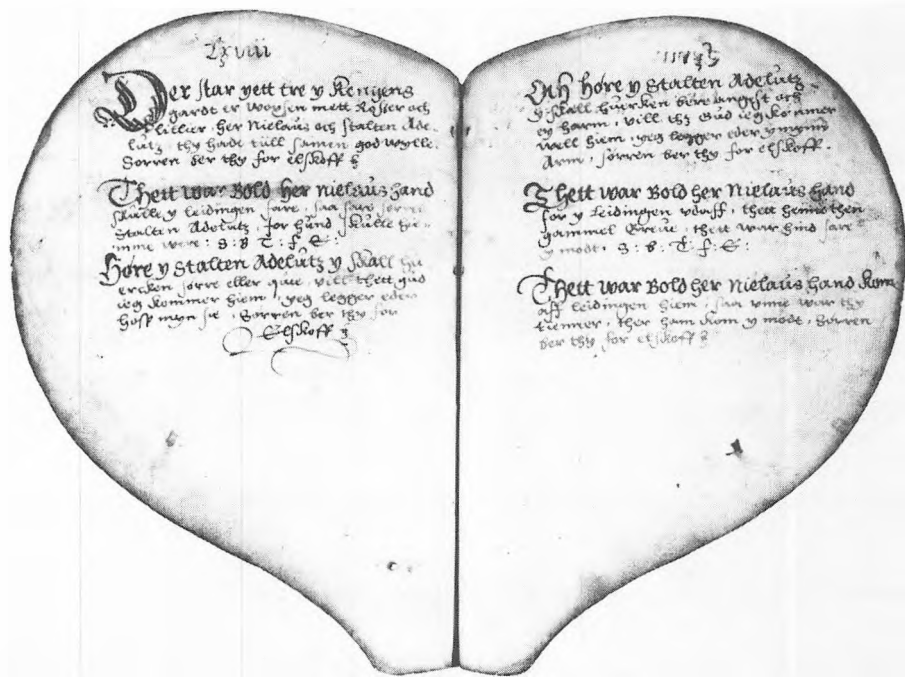 Lxviii
Der star yett tre y Kongens
gardt er woxsen mett Roser och
lillier, her Nielaus och stalten Ade-
lutz, thy hadt till samen god wylle
Sorren ber thy for elskoff
Thett war Bold her Nielaus hand
skulle y leidingen fare, saa sare sorre
stalten Adelutz, for hund skulle hie-
mme were: S: B T: f. E:
Høre y stalten Adelutz y skall hu
ercken sorre eller quie, vill thett gud
ieg kommer hiem, yeg legger eder
hoss myn sie, Sorren ber thy for
Elskoff
Och høre y stalten Adelutz
y skall huerken bere angist och
ey harm, vill thz Gud ieg kommer
well hiem, yeg legger eder y mynn
Arm, sorren ber thy for elskoff.
Thett war Bold her Nielaus hand
for y Leidingen vdaff, thett henne then
gammel Greue, thett war hind sare
y modt. S: B: T: f: E:
Thett war Bold her Nielaus hand Kom
aff leidingen hiem, saa vnne war thy
tienner, ther ham kom y modt, Sorren
ber thy for elskoff